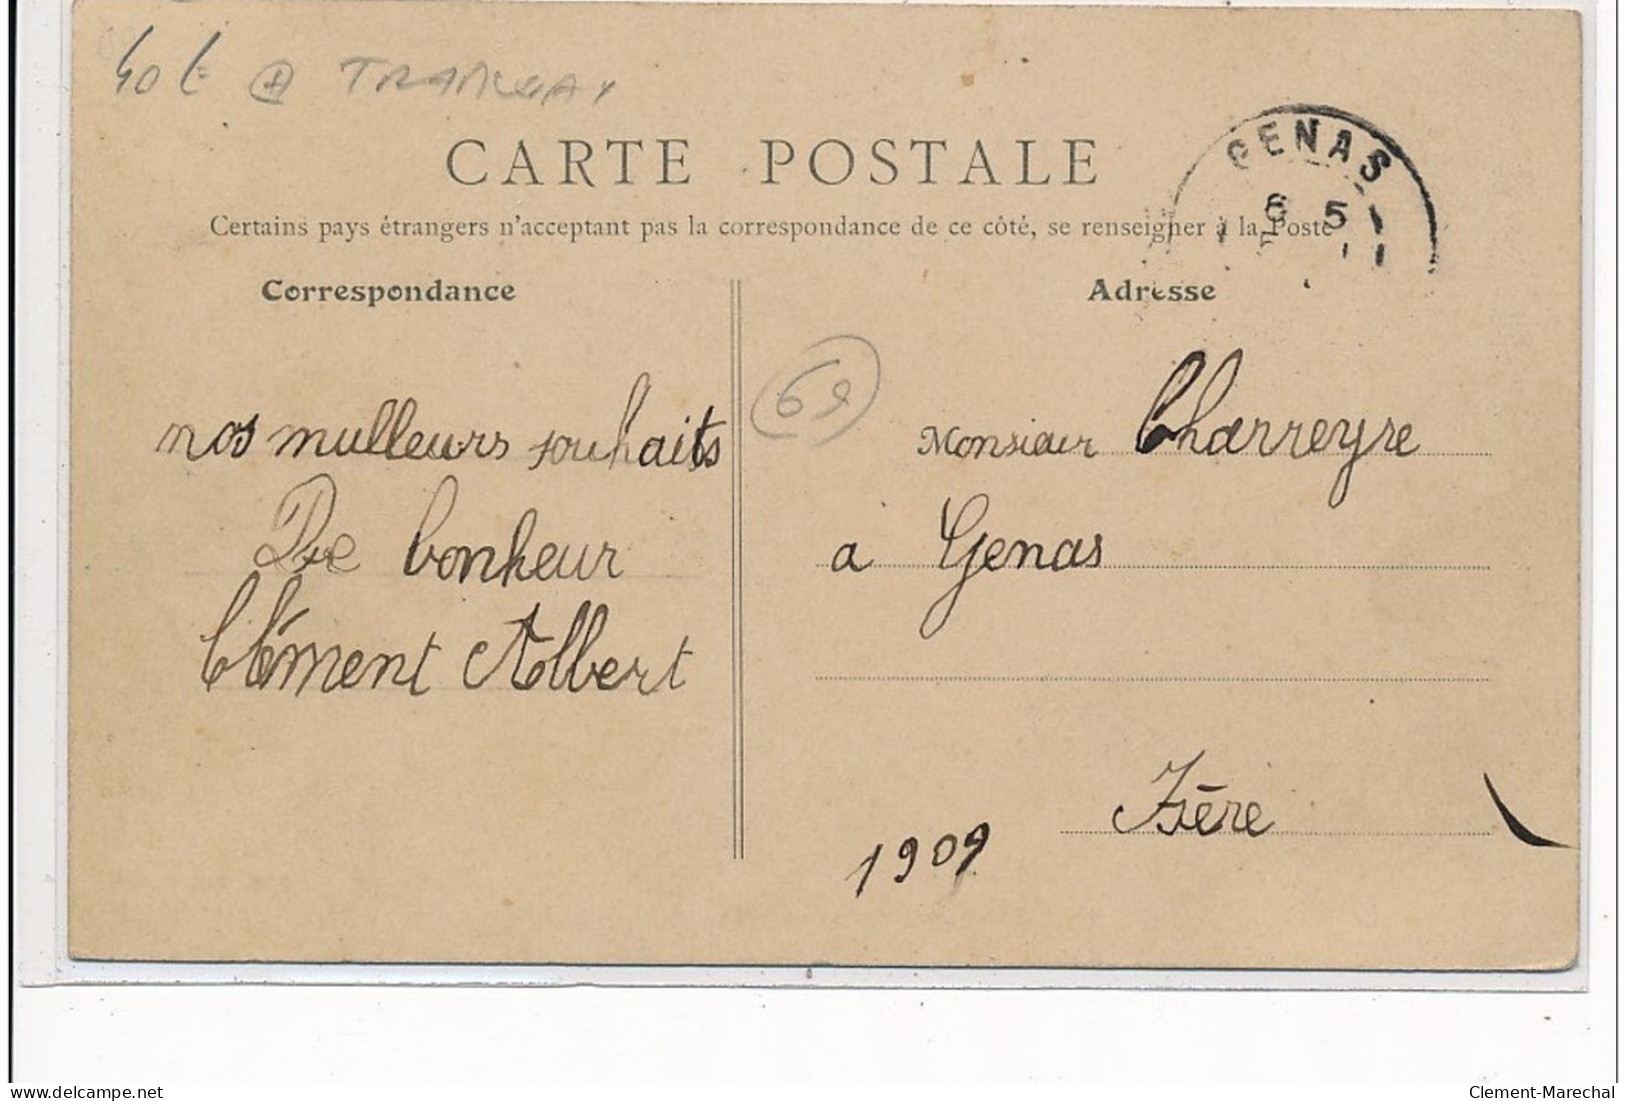 40 € A TRAMWAY
CARTE POSTALE
GENAS
6 5
Certains pays étrangers n'acceptant pas la correspondance de ce côté, se renseigner à la Poste
Correspondance
Adresse
69
nos mulleurs souhaits
De bonheur
Clément Albert
Monsieur Charreyre
a Genas
Isère
1909
www.delcampe.net
Clement-Marechal